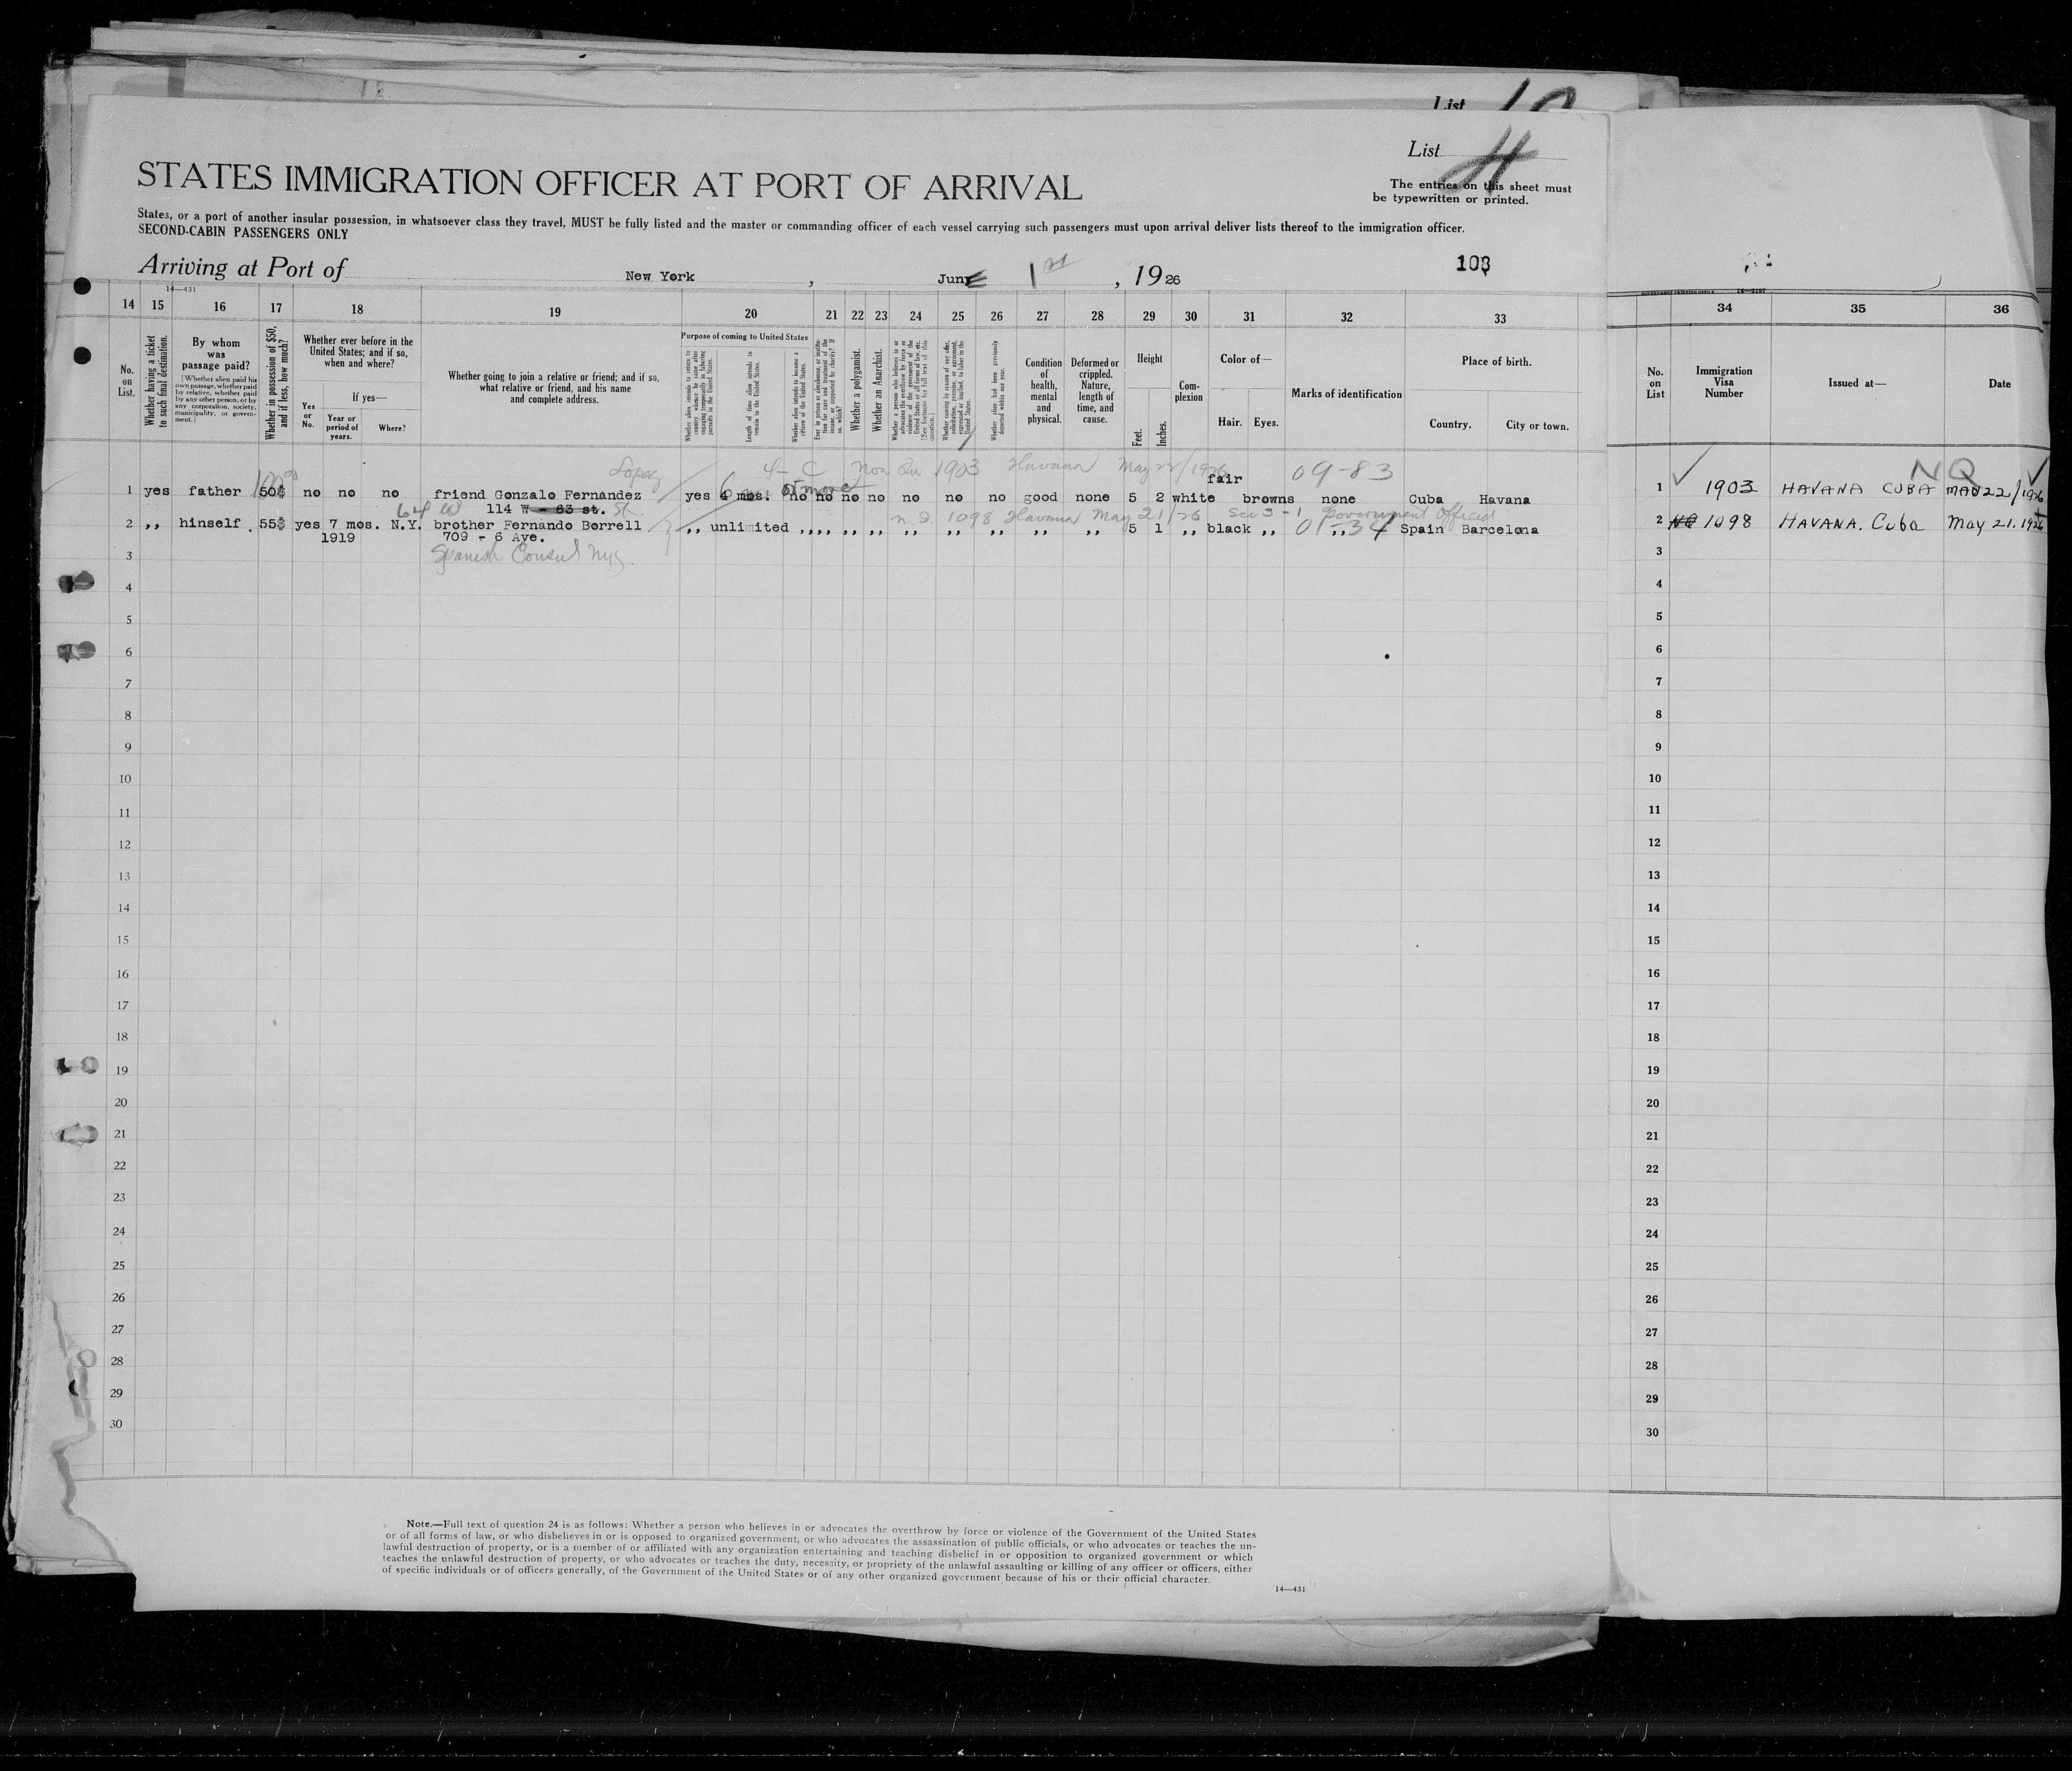 List
List H
STATES IMMIGRATION OFFICER AT PORT OF ARRIVAL
The entries on this sheet must
be typewritten or printed.
States, or a port of another insular possession, in whatsoever class they travel, MUST be fully listed and the master or commanding officer of each vessel carrying such passengers must upon arrival deliver lists thereof to the immigration officer.
SECOND-CABIN PASSENGERS ONLY
Arriving at Port of New York, June 1st, 1926
103
14—431
14 15 16 17 18 19 20 21 22 23 24 25 26 27 28 29 30 31 32 33 34 35 36
No. on List.
Whether having a ticket to such final destination.
By whom was passage paid?
[Whether alien paid his own passage, whether paid by relative, whether paid by any other person, or by any corporation, society, municipality, or government.]
Whether in possession of $50, and if less, how much?
Whether ever before in the United States; and if so, when and where?
Yes or No.
If yes—
Year or period of years.
Where?
Whether going to join a relative or friend; and if so, what relative or friend, and his name and complete address.
Purpose of coming to United States
Length of time alien intends to remain in the United States.
Whether alien intends to become a citizen of the United States.
Whether a polygamist.
Whether an Anarchist.
Condition of health, mental and physical.
Deformed or crippled. Nature, length of time, and cause.
Height
Feet.
Inches.
Complexion
Color of—
Hair.
Eyes.
Marks of identification
Place of birth.
Country.
City or town.
No. on List
Immigration Visa Number
Issued at—
Date
Lopez 4-C Non Qu 1903 Havana May 22/1926 09-83
NQ
fair
1 yes father 50$ no no no friend Gonzalo Fernandez yes 4 mos. 6 or more no no no no no no no good none 5 2 white browns none Cuba Havana
1 1903 HAVANA CUBA MAY 22/1926
64 W 114 W - 63 st. St.
n.Q. 1098 Havana May 21/26 Sec 3-1 Government Official
2 ,, hinself 55$ yes 7 mos. N.Y. brother Fernando Borrell ,, unlimited ,, ,, ,, ,, ,, ,, ,, ,, ,, 5 1 ,, black ,, ,, 01-34 Spain Barcelona
2 NQ 1098 HAVANA. Cuba May 21. 1926
1919 709 - 6 Ave.
Spanish Consul NYC
3 3
4 4
5 5
6 6
7 7
8 8
9 9
10 10
11 11
12 12
13 13
14 14
15 15
16 16
17 17
18 18
19 19
20 20
21 21
22 22
23 23
24 24
25 25
26 26
27 27
28 28
29 29
30 30
Note.—Full text of question 24 is as follows: Whether a person who believes in or advocates the overthrow by force or violence of the Government of the United States
or of all forms of law, or who disbelieves in or is opposed to organized government, or who advocates the assassination of public officials, or who advocates or teaches the un-
lawful destruction of property, or is a member of or affiliated with any organization entertaining and teaching disbelief in or opposition to organized government or which
teaches the unlawful destruction of property, or who advocates or teaches the duty, necessity, or propriety of the unlawful assaulting or killing of any officer or officers, either
of specific individuals or of officers generally, of the Government of the United States or of any other organized government because of his or their official character.
14—431